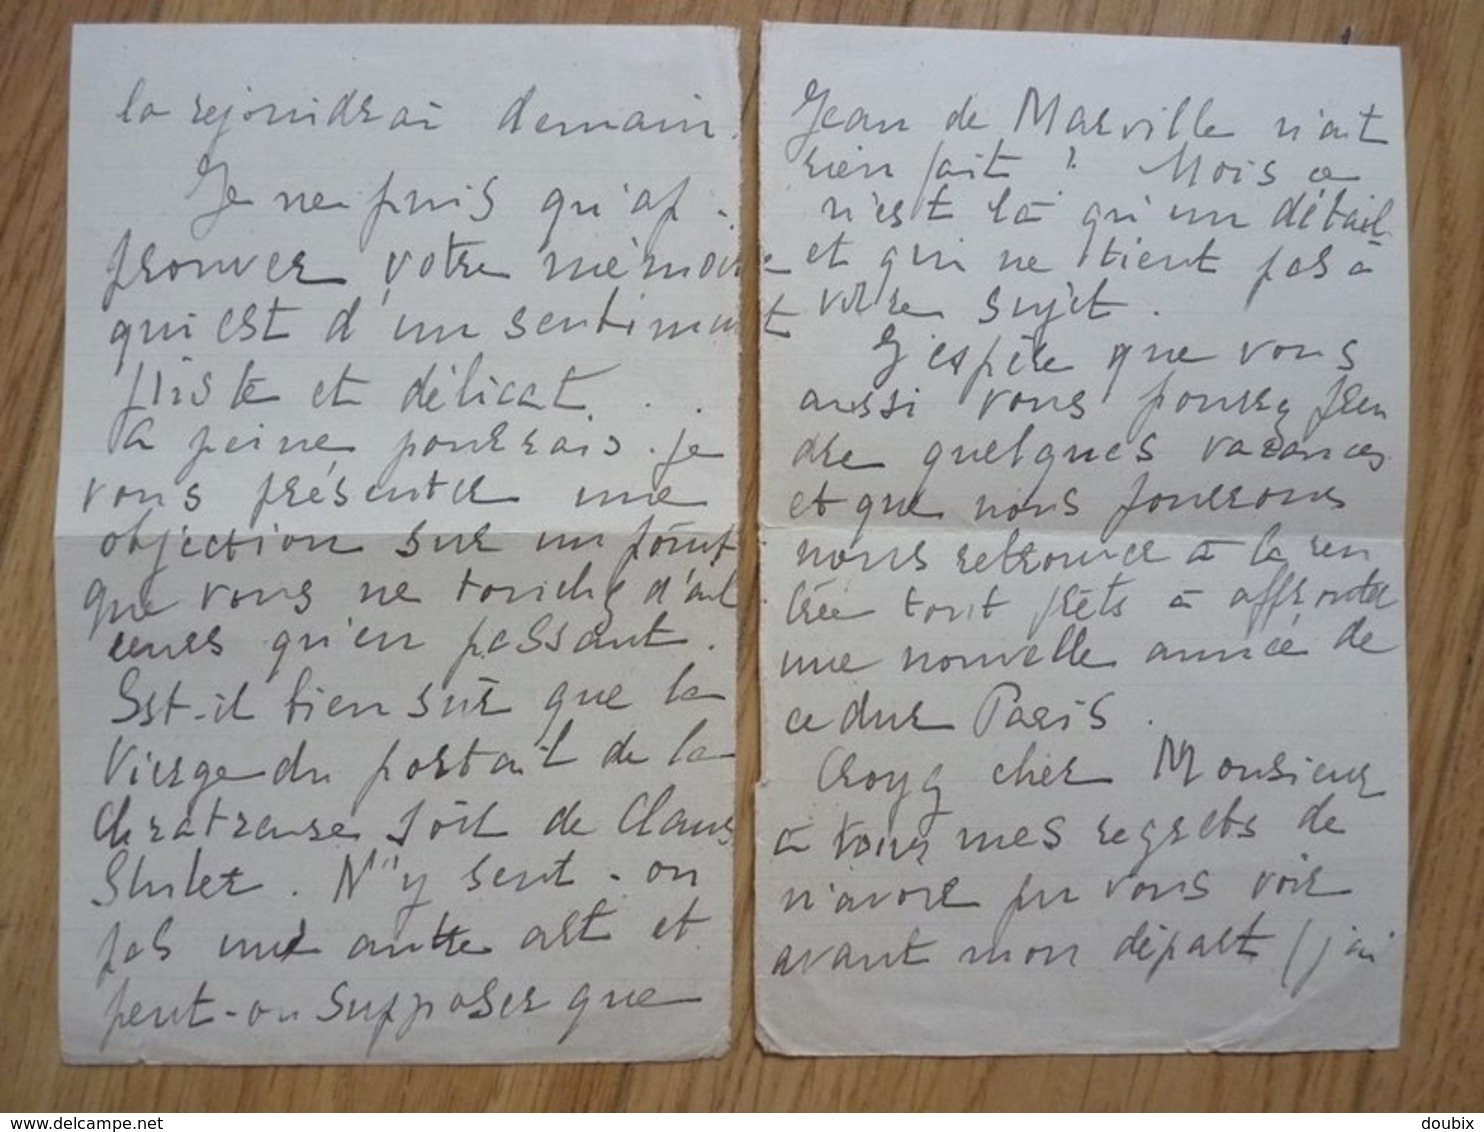 la rejoindrai demain.
Je ne puis qu'ap-
prouver votre mémoire
qui est d'un sentiment
juste et délicat...
A peine pourrais-je
vous présenter une
objection sur un point
que vous ne touchez d'ail
leurs qu'en passant.
Est-il bien sûr que la
Vierge du portail de la
Chartreuse soit de Claus
Sluter. N'y sent-on
pas un autre art et
peut-on supposer que
Jean de Marville n'ait
rien fait ? Mais ce
n'est là qu'un détail
et qui ne tient pas à
votre sujet.
J'espère que vous
aussi vous pouvez pren
dre quelques vacances
et que nous pourrons
nous retrouver à la ren
trée tout prêts à affronter
une nouvelle année de
ce dur Paris.
Croyez cher Monsieur
à tous mes regrets de
n'avoir pu vous voir
avant mon départ (j'ai
delcampe.net
doubix